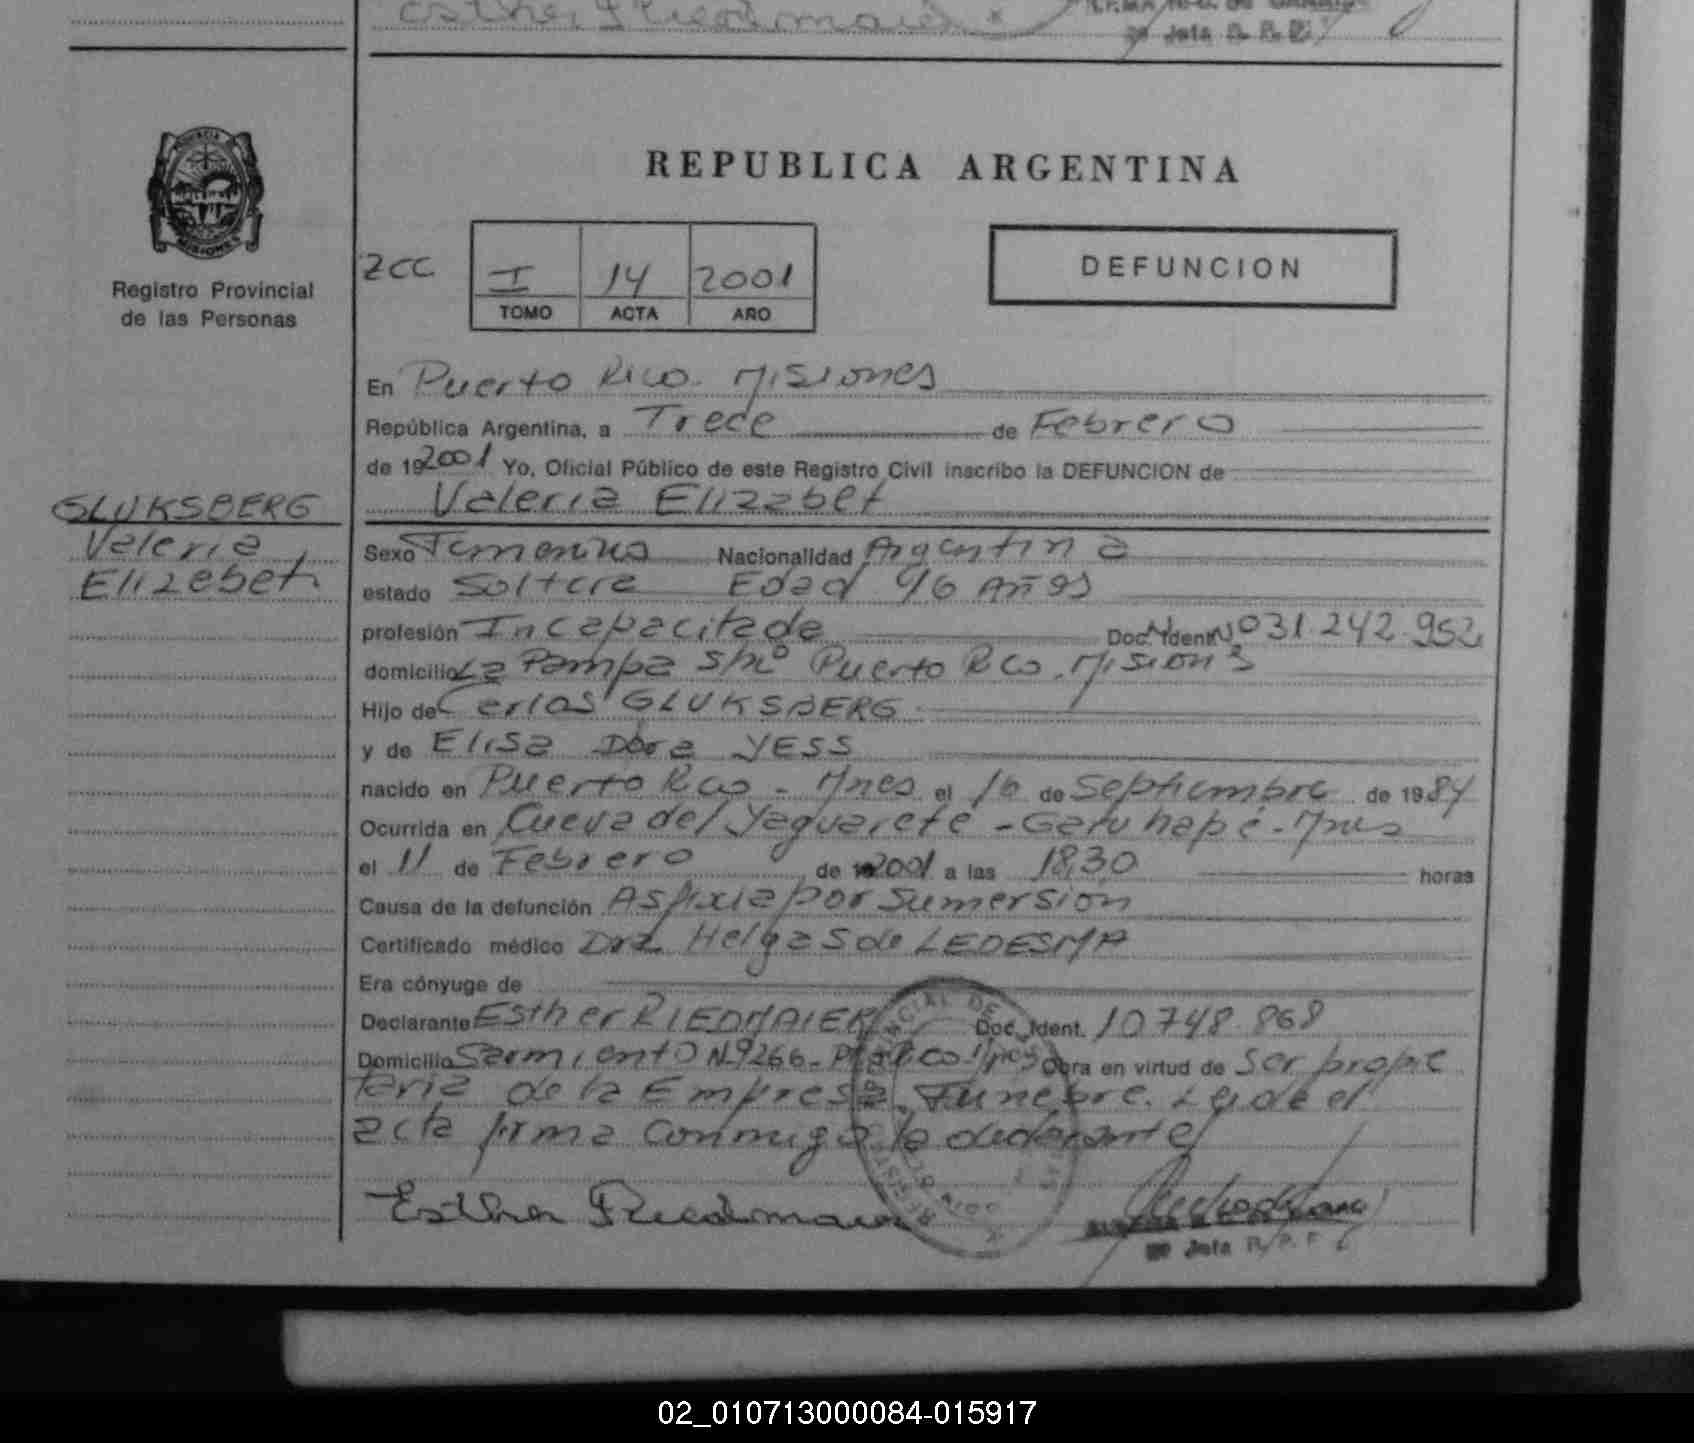 Esther Riedmaier
2º Jefa R. P. P.
REPUBLICA ARGENTINA
PROVINCIA
MISIONES
Registro Provincial
de las Personas
2CC
I 14 2001
TOMO ACTA AÑO
DEFUNCION
En Puerto Rico. Misiones
República Argentina, a Trece de Febrero
de 192001 Yo, Oficial Público de este Registro Civil inscribo la DEFUNCION de
Valeria Elizabet
GLUKSBERG
Valeria
Elizabet
Sexo Femenino Nacionalidad Argentina
estado Soltera Edad 16 Años
profesión Incapacitada Doc. Ident. Nº 31.242.952
domicilio La Pampa s/nº Puerto Rico. Misiones
Hijo de Carlos GLUKSBERG
y de Elisa Dora YESS
nacido en Puerto Rico - Mnes el 16 de Septiembre de 1984
Ocurrida en Cueva del Yaguareté - Garuhapé - Mnes
el 11 de Febrero de 2001 a las 18,30 horas
Causa de la defunción Asfixia por Sumersión
Certificado médico Dra. Helga S de LEDESMA
Era cónyuge de
Declarante Esther RIEDMAIER Doc. Ident. 10.748.868
Domicilio Sarmiento Nº 266 - Pto Rico Mnes Obra en virtud de Ser propie
taria de la Empresa Funebre. Leída el
acta firma conmigo la declarante
Esther Riedmaier
2º Jefa R. P. P.
02_010713000084-015917